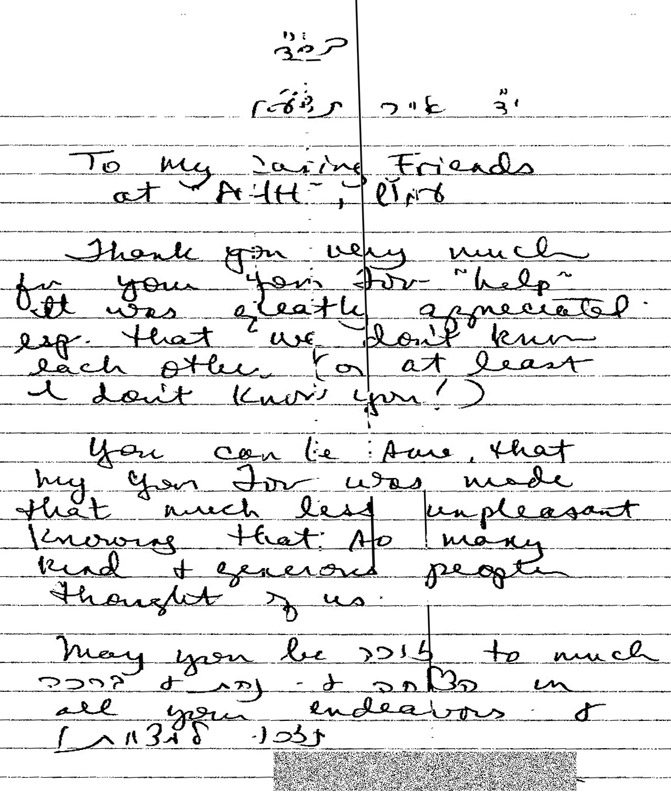 אייר
To my caring Friends
at "AHH",
Thank you very much
for your Yom Tov "help"
It was greatly appreciated
esp. that we don't know
each other (or at least
I don't know you!)
You can be sure, that
my Yom Tov was made
that much less unpleasant
knowing that so many
kind & generous people
thought of us.
May you be זוכה to much
& נחת & הצלחה in
all your endeavors &